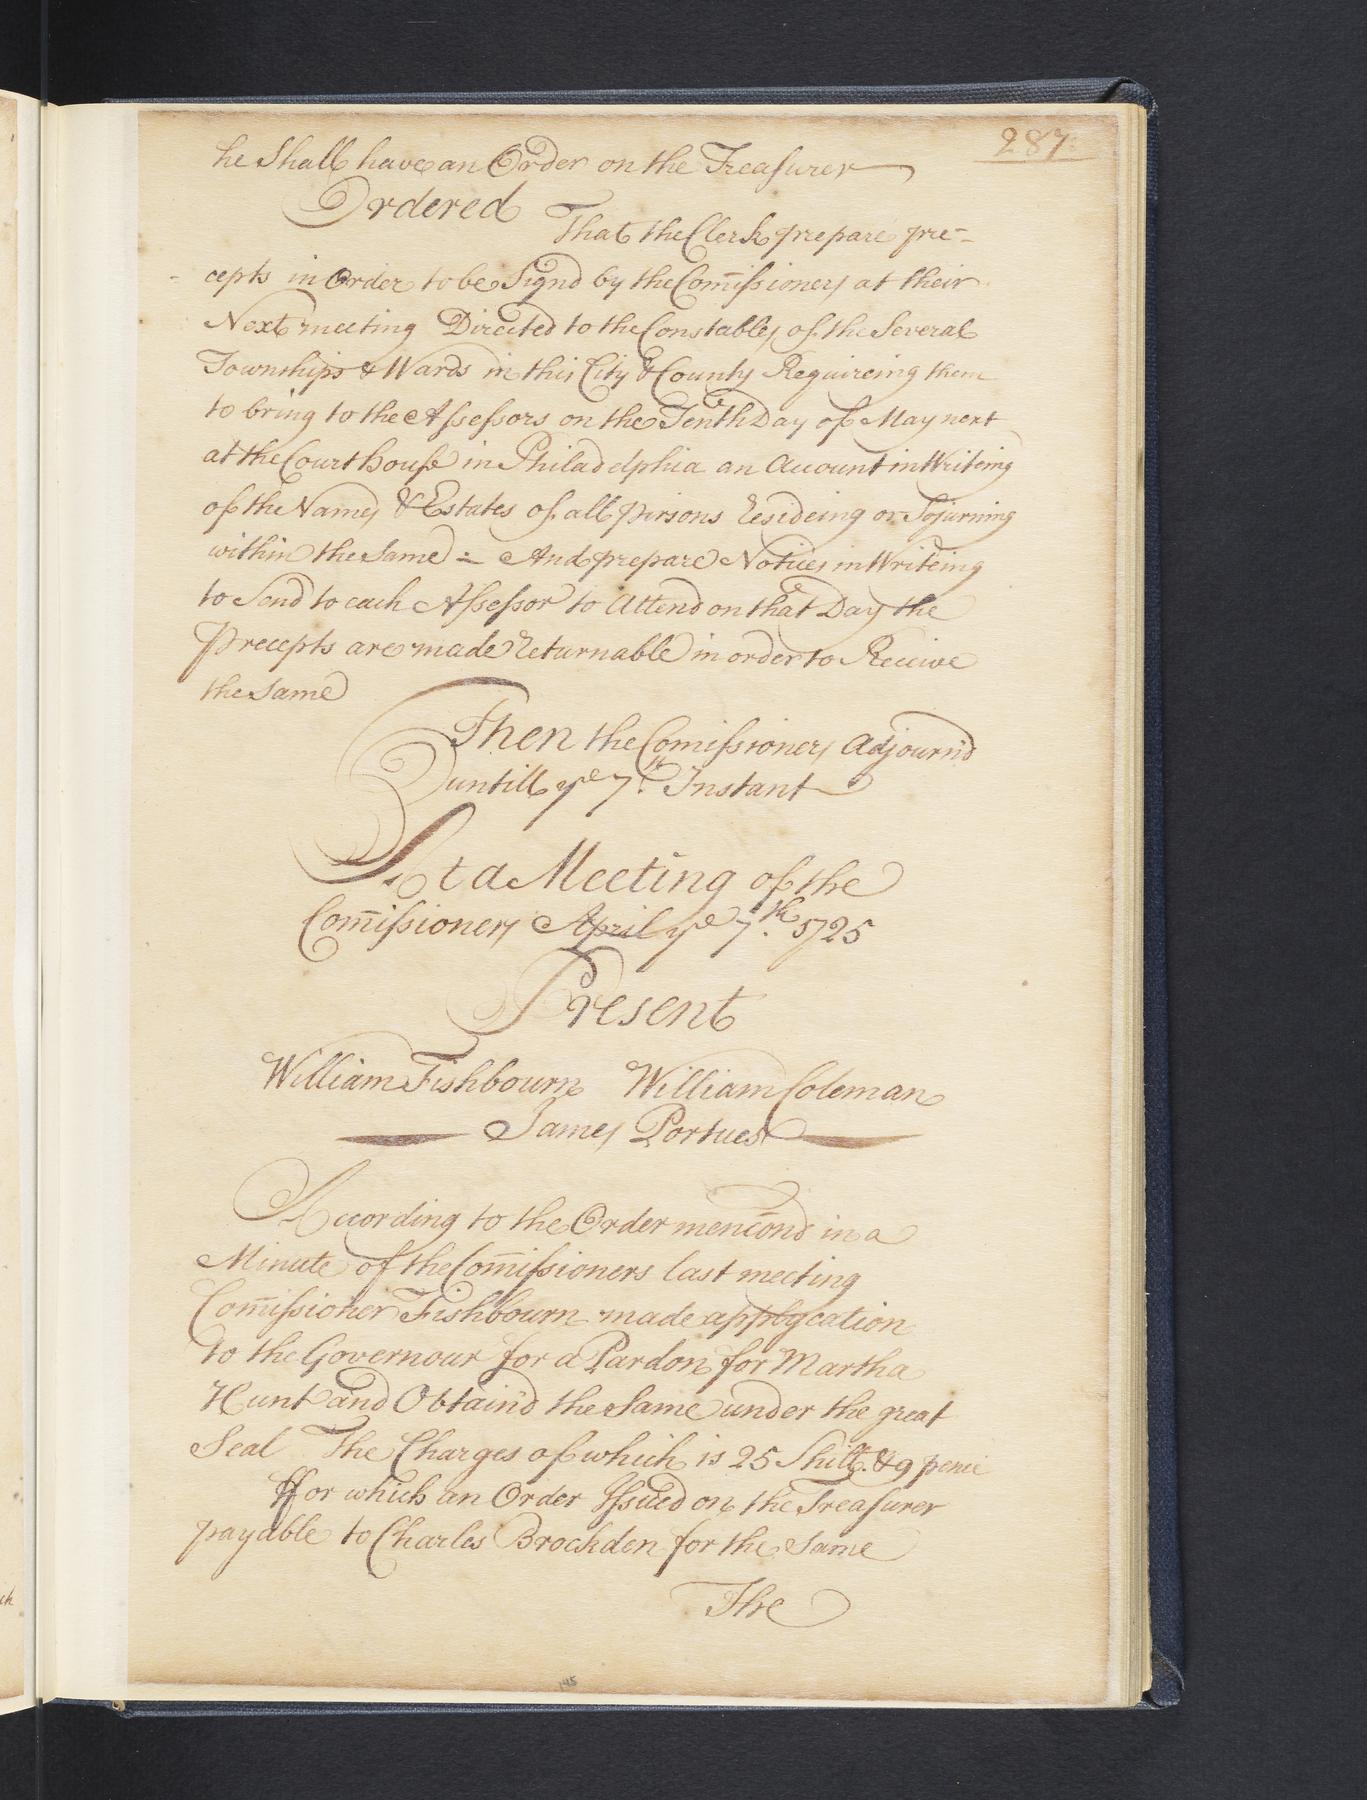 287
he Shall have an Order on the Treasurer
Ordered That the Clerk prepare pre-
-cepts in Order to be Signd by the Com̄issioners at their
Next meeting Directed to the Constables of the Several
Townships & Wards in this City & County Requireing them
to bring to the Assessors on the Tenth Day of May next
at the Court house in Philadelphia an Account in Writeing
of the Names & Estates of all persons Resideing or Sojurning
within the Same = And prepare Notices in Writeing
to Send to each Assessor to Attend on that Day the
Precepts are made Returnable in order to Receive
the Same
Then the Comissioners Adjourn'd
untill yᵉ 7th Instant
At a Meeting of the
Com̄issioners April yᵉ 7.th 1725
Present
William Fishbourn William Coleman
James Portues
According to the Order menc̄ond in a
Minute of the Com̄issioners last meeting
Com̄issioner Fishbourn made applycation
to the Governour for a Pardon for Martha
Hunt and Obtain'd the Same under the great
Seal The Charges of which is 25 Shill. & 9 pence
ffor which an Order Issued on the Treasurer
payable to Charles Brockden for the Same
The
145